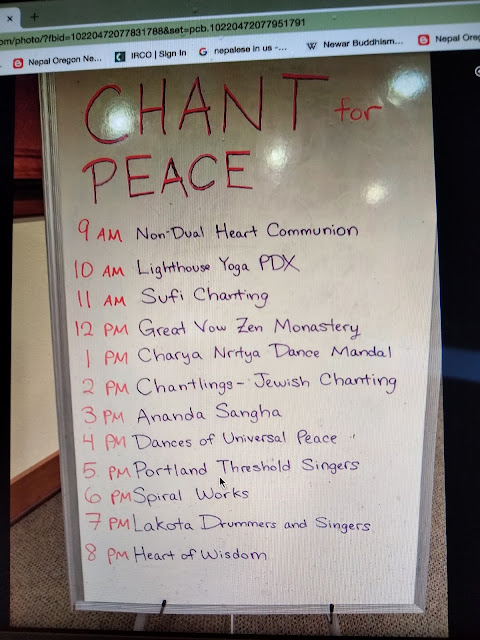 om/photo/?fbid=10220472077831788&set=pcb.10220472077951791
Nepal Oregon Ne... IRCO | Sign In nepalese in us -... Newar Buddhism... Nepal Oreg
CHANT for
PEACE
9 AM Non-Dual Heart Communion
10 AM Lighthouse Yoga PDX
11 AM Sufi Chanting
12 PM Great Vow Zen Monastery
1 PM Charya Nritya Dance Mandal
2 PM Chantlings - Jewish Chanting
3 PM Ananda Sangha
4 PM Dances of Universal Peace
5 PM Portland Threshold Singers
6 PM Spiral Works
7 PM Lakota Drummers and Singers
8 PM Heart of Wisdom